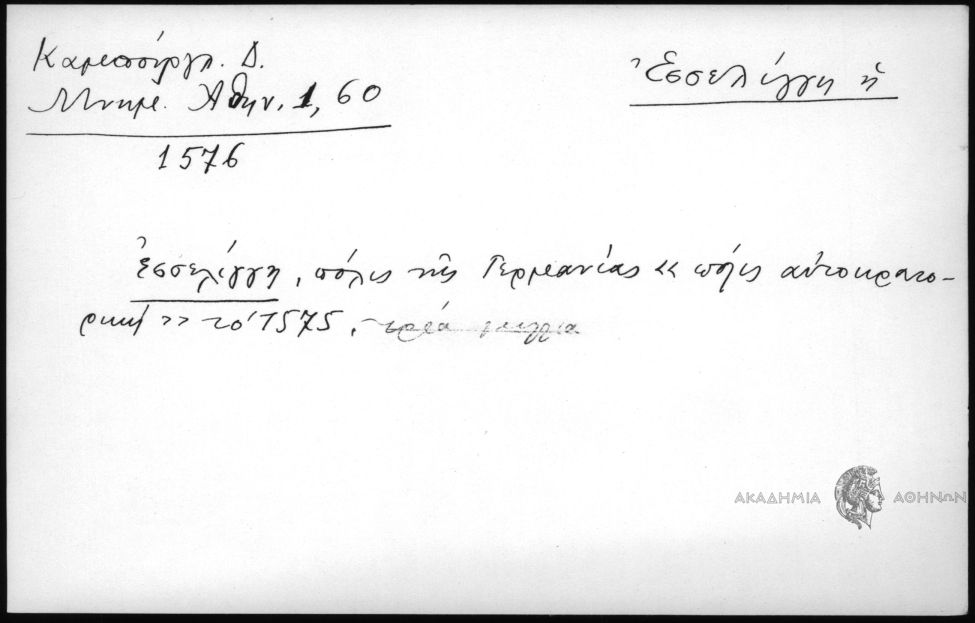 Καμπούρογλ. Δ.
Μνημ. Ἀθην. 1, 60
1576
Ἐσσελίγγη ἡ
Ἐσσελίγγη, πόλις τῆς Γερμανίας « πόλις αὐτοκρατο-
ρική » τὸ 1575,
ΑΚΑΔΗΜΙΑ ΑΘΗΝΩΝ